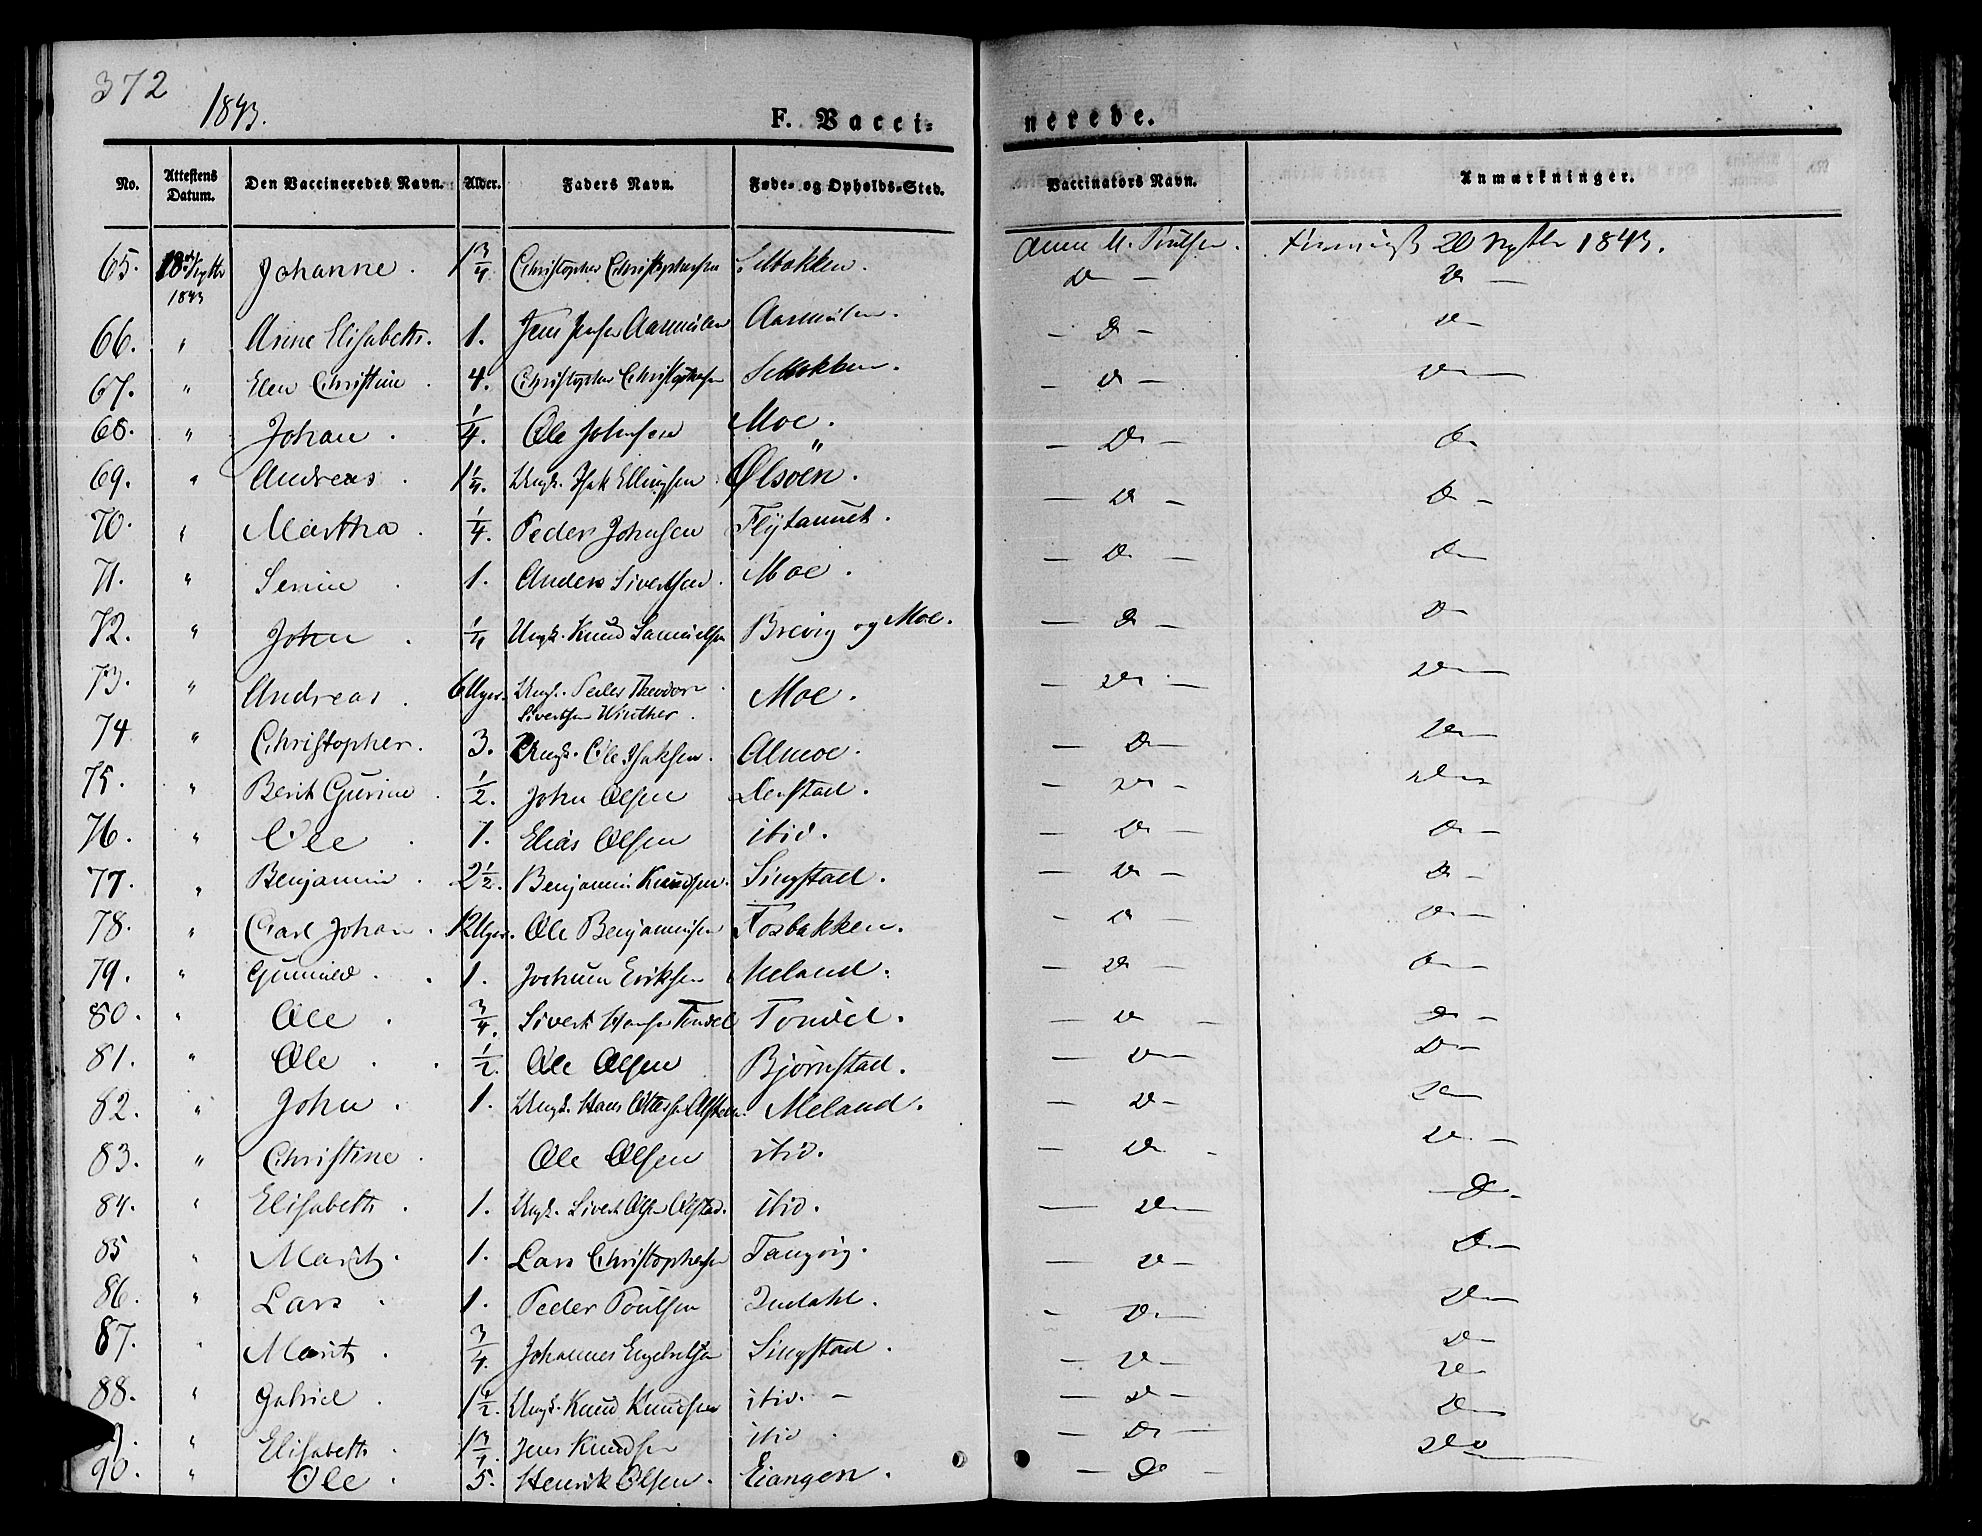 372
1843.
F. Vacci-nerede.
No. Attestens Datum. Den Vaccineredes Navn. Alder. Faders Navn. Føde- og Opholds-Sted. Vaccinators Navn. Anmærkninger.
65. 18 1843 Johanne. 1 3/4 Christopher Christophersen 20 1843.
66. " Anne Elisabeth. 1. Jens Aasmulen Aasmulen. D D
67. " Elen Christine. 4. Christopher Christophersen D D
68. " Johan. 1/4. Ole Johnsen Moe. D D
69. " Andreas. 1 1/4. Ungk. Isak Ellingsen Ølsöen. D D
70. " Martha. 1/4. Peder Johnsen D D
71. " Serine. 1. Anders Sivertsen. Moe. D D
72. " John. 1/4 Ungk. Knud Samuelsen Brevig og Moe. D D
73. " Andreas. 6 Uger. Ungk. Peder Theodor Sivertsen Winther. Moe. D D
74 " Christopher. 3. Ungk. Ole Isaksen. Almoe. D D
75. " Berit Gurine. 1/2. John Olsen D D
76. " Ole. 1. Elias Olsen ibid. D D
77. " Benjamin. 2 1/2. Benjamin Knudsen. Singstad. D D
78. " Carl Johan. 12 Uger. Ole Benjaminsen Fosbakken. D D
79. " Gunnild. 1. Jochum Eriksen Meland. D D
80. " Ole. 3/4. Sivert Tondel Tondel. D D
81. " Ole. 1/2. Ole Olsen Bjørnstad. D D
82. " John. 1. Ungk. Hans Meland. D D
83. " Christine. Ole Olsen ibid. D D
84. " Elisabeth. 1. Ungk. Sivert Olsen Olstad. ibid. D D
85 " Marit. 1. Lars Christophersen Tangvig. D D
86. " Lars. 1. Peder Poulsen Indahl. D D
87. " Marit. 3/4. Johannes Engelbritsen Singstad. D D
88. " Gabriel. 1 1/2. Ungk. Knud Knudsen ibid. D D
" Elisabeth. Jens Knudsen ibid D D
90. " Ole. 5. Henrik Olsen. Eiangen. D D